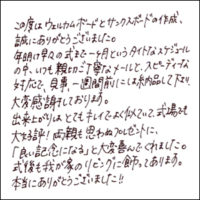 この度はウェルカムボードとサンクスボードの作成、
誠にありがとうございました。
年明け早々の式まで一ヶ月というタイトなスケジュール
の中、いつも親切丁寧なメールと、スピーディーな
対応で、見事一週間前には納品して下さり、
大変感謝しております。
出来上がりはとてもキレイでよく似ていて、式場でも
大好評!両親も思わぬプレゼントに、
「良い記念になる」と大変喜んでくれました。
式後も我が家のリビングに飾ってあります。
本当にありがとうございました!!